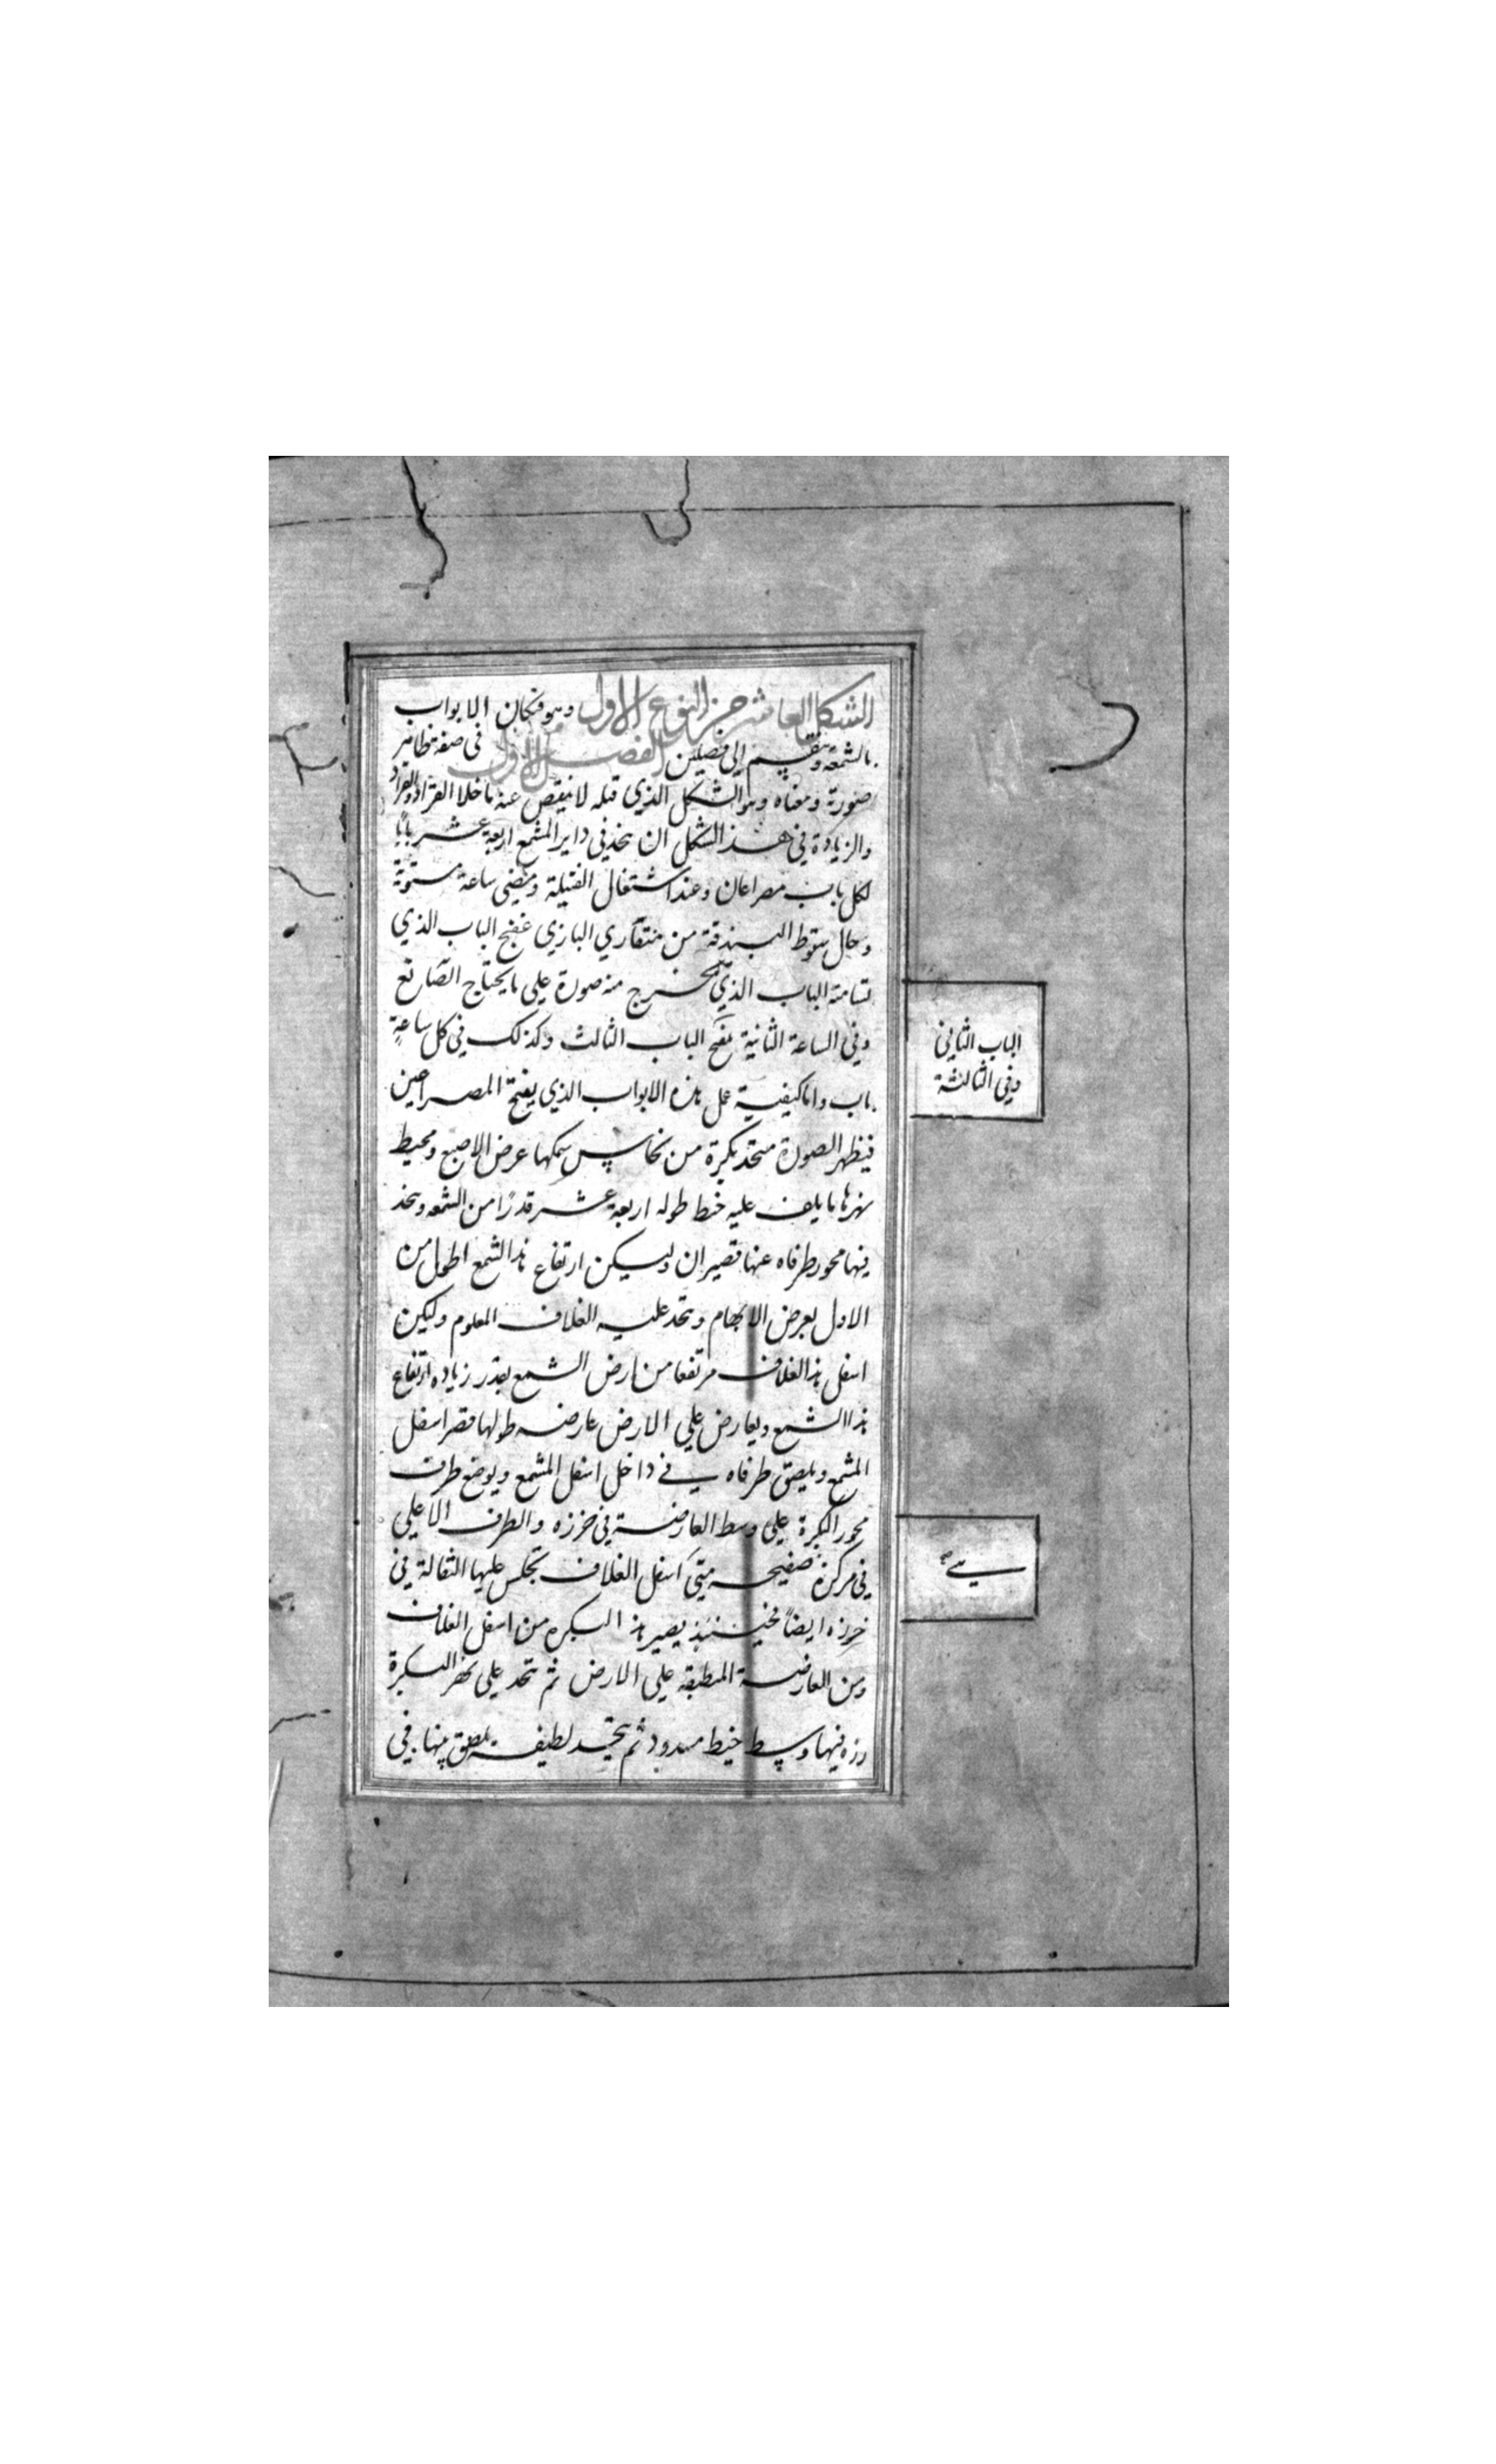 الشكل العاشر من النوع الاول وهو فنكان الابواب
بالشمعة وينقسم الى فصلين الفصل الاول في صفة ظاهر
صورته ومعناه وهو الشكل الذي قبله لا ينقص عنه ما خلا القراد والقراد
والزيادة في هذا الشكل ان يتخذ في داير المشمع اربعة عشر بابًا
لكل باب مصراعان وعند اشتعال الفتيلة ومضى ساعة مستوية
وحال سقوط البندقة من منقاري البازي يفتح الباب الذي
تسامته الباب الذي يخرج منه صورة على ما يحتاج الصانع
وفي الساعة الثانية يفتح الباب الثالث وكذلك في كل ساعةٍ
باب واما كيفية عمل هذه الابواب الذي يفتح المصراعين
فيظهر الصورة متخذ بكرة من نحاس سمكها عرض الاصبع ومحيط
نهرها ما يلف عليه خيط طوله اربعة عشر قدرًا من الشمعه ويتخذ
فيها محور طرفاه عنها قصيران وليكن ارتفاع هذا الشمع اطول من
الاول بعرض الابهام ويتخذ عليه الغلاف المعلوم وليكن
اسفل هذا الغلاف مرتفعا من ارض الشمع بقدر زياده ارتفاع
هذا الشمع ويعارض على الارض عارضه طولها قصر اسفل
المشمع ويلصق طرفاه في داخل اسفل المشمع ويوضع طرف
محور البكرة على وسط العارضة في خرزه والطرف الاعلي
في مركز صفيحه متى اسفل الغلاف تجلس عليها الثقالة في
خرزه ايضاً فحينئذ يصير هذ البكره من اسفل الغلاف
ومن العارضة المنطبقه على الارض ثم يتخذ على نهر البكرة
رزه فيها وسط خيط مسدود ثم يتخذ لطيفة يلصق منها في
الباب الثاني
وفي الثالثة